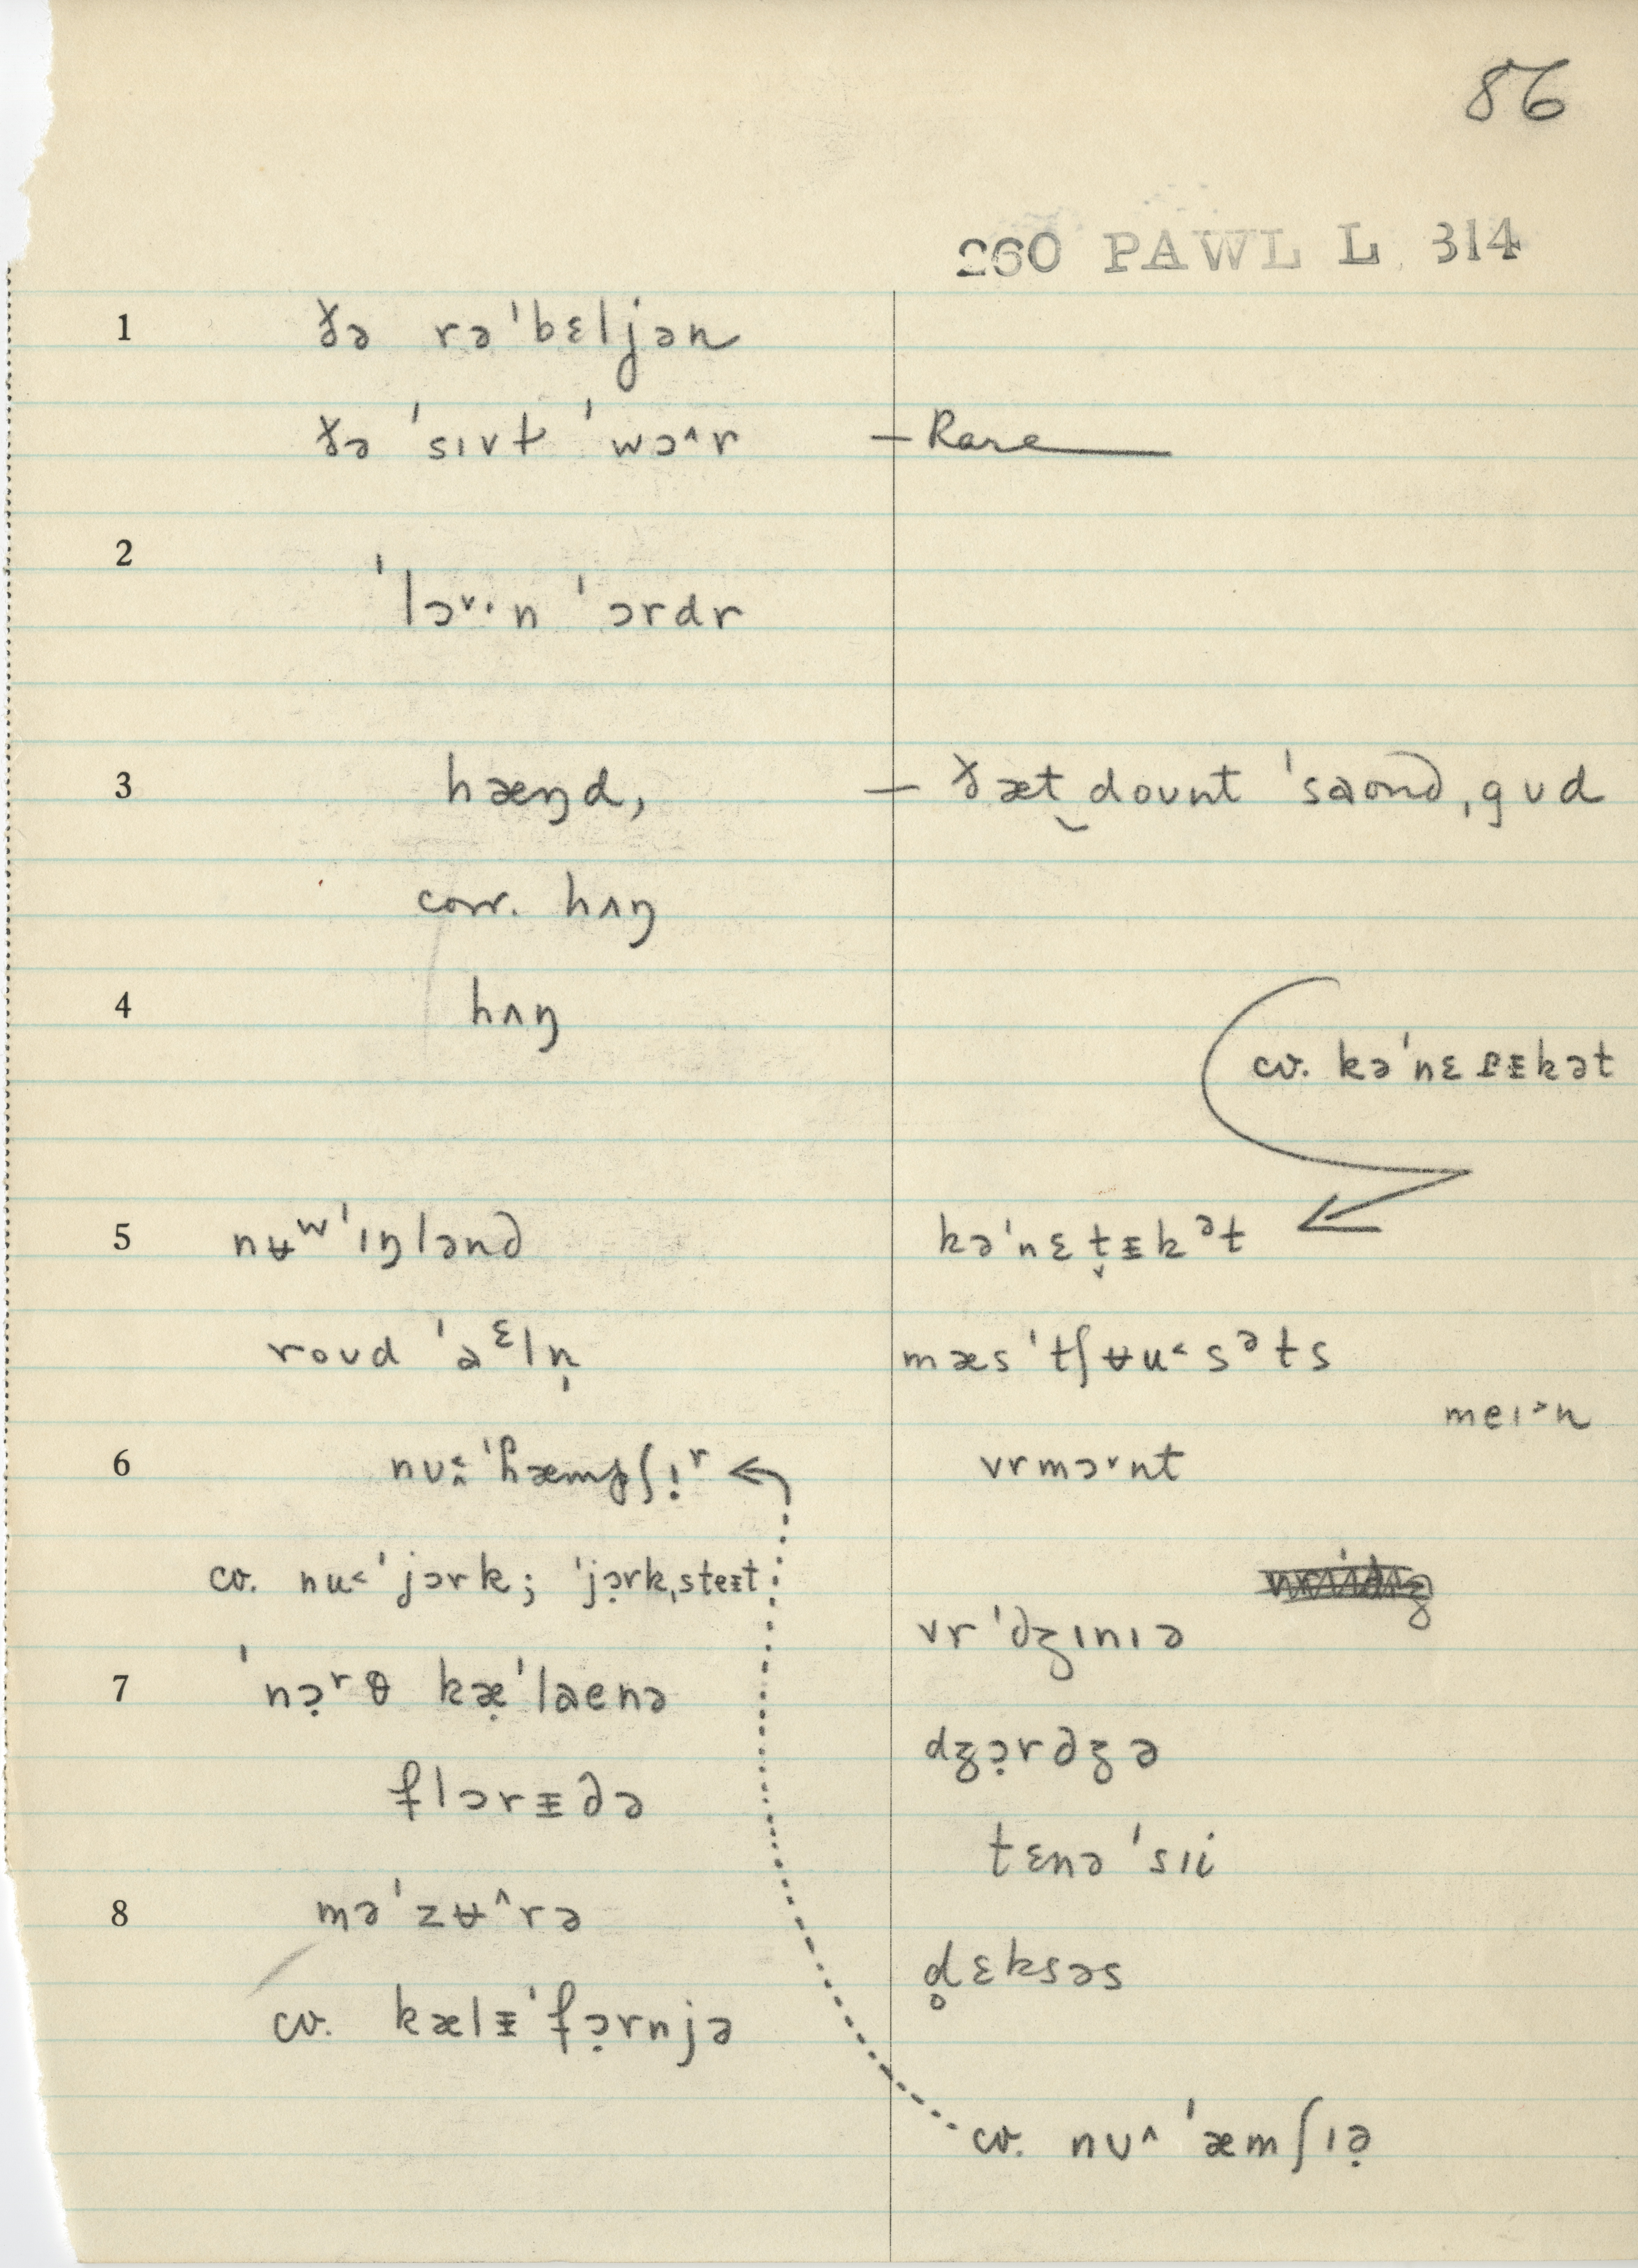 86
260 PAWL L 314
1 ðə rə'bɛljən
ðə 'sɪvt 'wɔ^r — Rare
2
'lɔ˅·n 'ɔrdr
3 hæŋd, — ðæt̬ dount 'saond ˌgʊd
corr. hʌŋ
4 hʌŋ
cv. kə'nɛɾᵻkət
5 nʉʷ'ɪŋlənd kə'nɛt̬ᵻkᵊt
roʊd 'aᵋln̩ mæs'tʃʉu˂sᵊts
meɪ˃n
6 vrmɔ˅nt
cv. nu˂'jɔrk; 'jɔ̣rkˌsteᵻt
vr'dʒɪnɪə
7 'nɔ̣ʳθ kæ̣'laenə
dʒɔ̣rdʒə
flɔrᵻdə
tɛnə'sɪi
8 mə'zʉ^rə
d̥ɛksəs
cv. kælᵻ'fɔ̣rnjə
cv. nʊ^'æmʃɪə̣